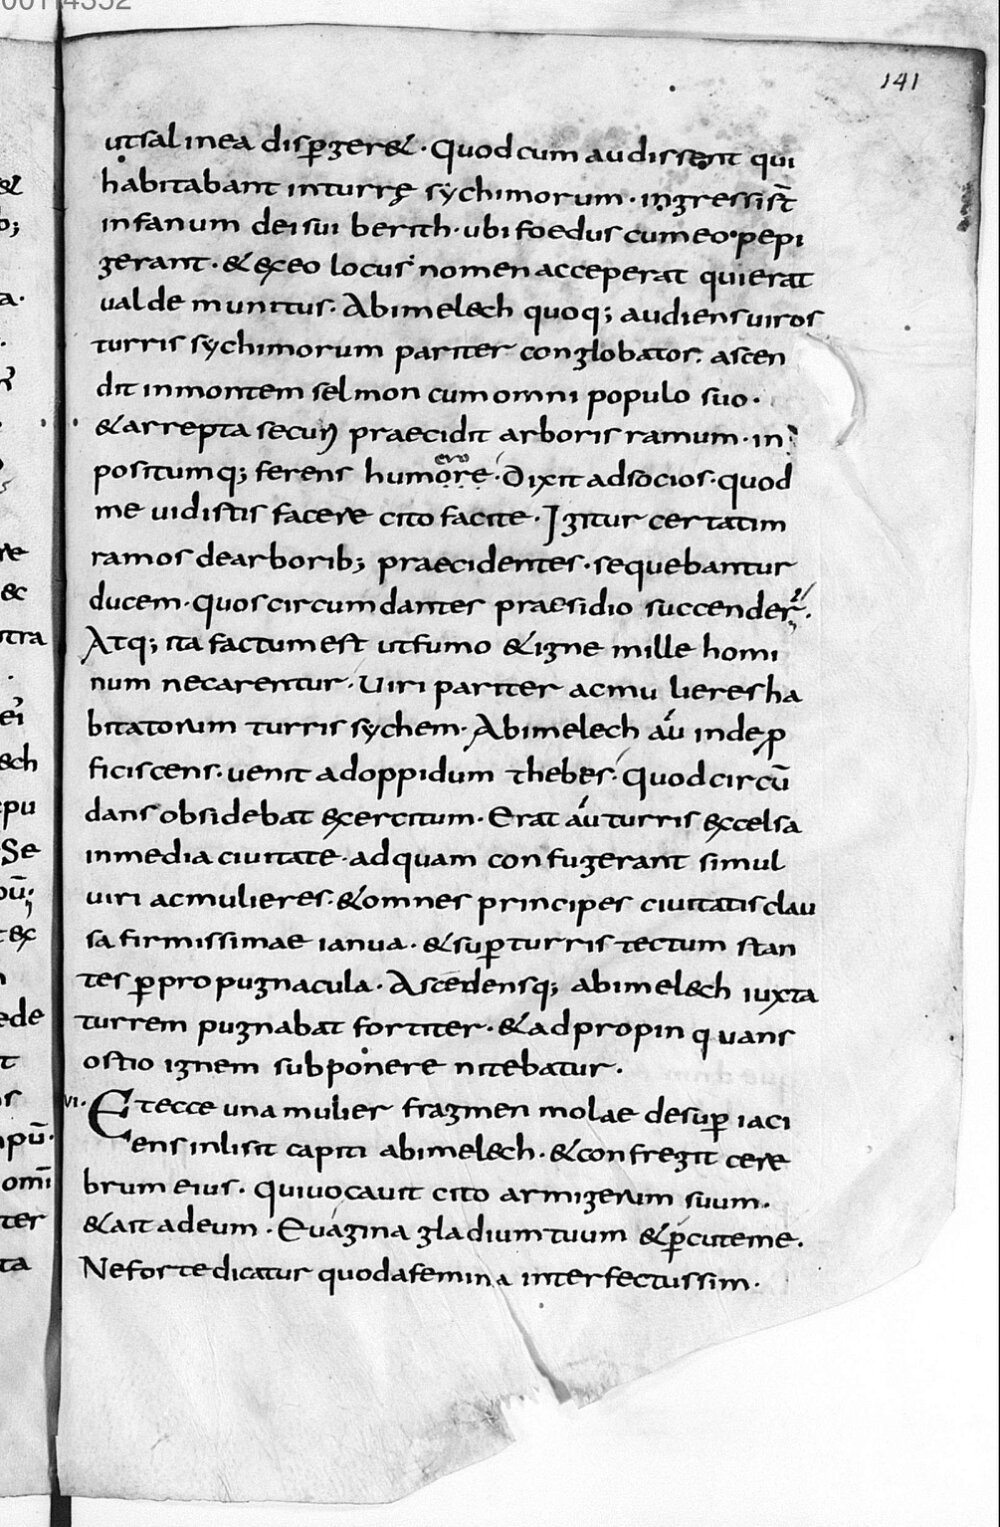 141
utsal inea disꝑger&. Quod cum audissent qui
habitabant inturrę sychimorum. ingressisт̄
infanum dei sui berith. ubi foedus cumeo pepi
gerant. & exeo locus nomen acceperat qui erat
ualde munitus. Abimelech quoq; audiens uiros
turris sychimorum pariter conglobatos. ascen
dit inmontem selmon cum omni populo suo.
& arrepta securi praecidit arboris ramum. in
positumq; ferens humore ero. Dixit adsocios. quod
me uidistis facere cito facite. Igitur certatim
ramos dearborib; praecidentes. sequebantur
ducem. quos circumdantes praesidio succender̄.
Atq; ita factum est utfumo & igne mille homi
num necarentur. Uiri pariter acmulieres ha
bitatorum turris sychem. Abimelech aū indeꝑ
ficiscens. uenit adoppidum thebes. quod circū
dans obsidebat exercitum. Erat aū turris excelsa
inmedia ciuitate. adquam confugerant simul
uiri acmulieres. & omnes principes ciuitatis clau
sa firmissimae ianua. & suꝑ turris tectum stan
tes ꝑpropugnacula. Ascendensq; abimelech iuxta
turrem pugnabat fortiter. & adpropinquans
ostio ignem subponere nitebatur.
VI. Et ecce una mulier fragmen molae desuꝑ iaci
ens inlisit capiti abimelech. & confregit cere
brum eius. qui uocauit cito armigerum suum.
& ait adeum. Euagina gladium tuum & ꝑcuteme.
Neforte dicatur quodafemina interfectus sim.